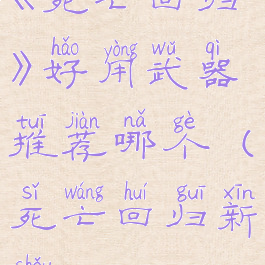 《死亡回归
hǎo yòng wǔ qì
》好用武器
tuī jiàn nǎ gè
推荐哪个（
sǐ wáng huí guī xīn
死亡回归新
shǒu